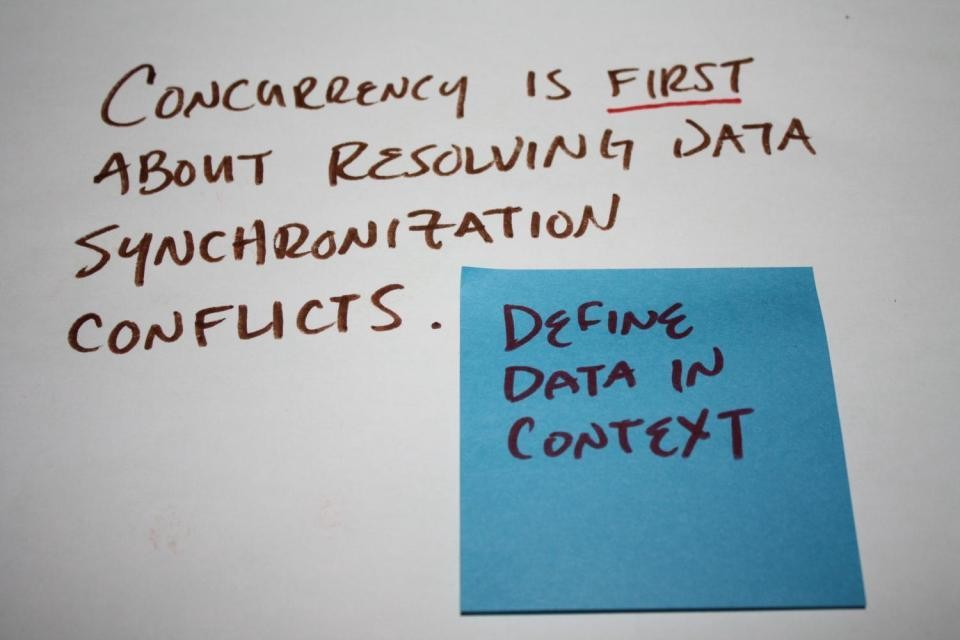 CONCURRENCY IS FIRST
ABOUT RESOLVING DATA
SYNCHRONIZATION
CONFLICTS.
DEFINE
DATA IN
CONTEXT